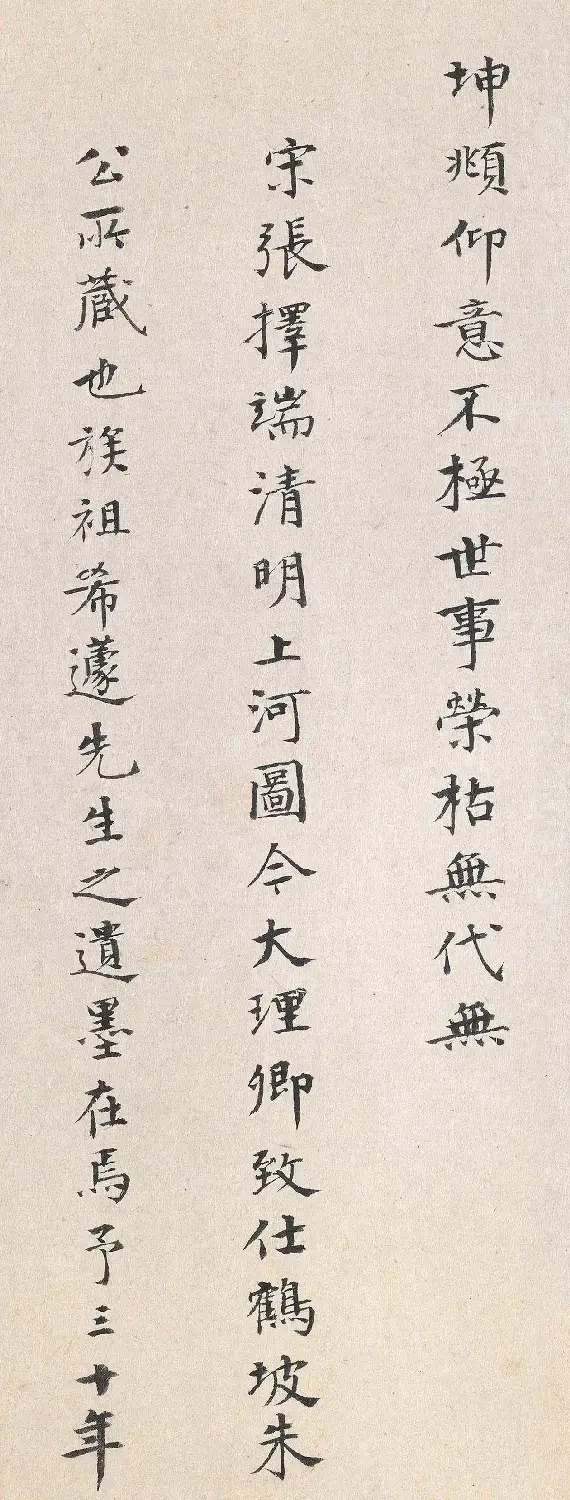 坤頫仰意不極世事榮枯無代無
宋張擇端清明上河圖今大理卿致仕鶴坡朱
公所藏也族祖希蘧先生之遺墨在焉予三十年